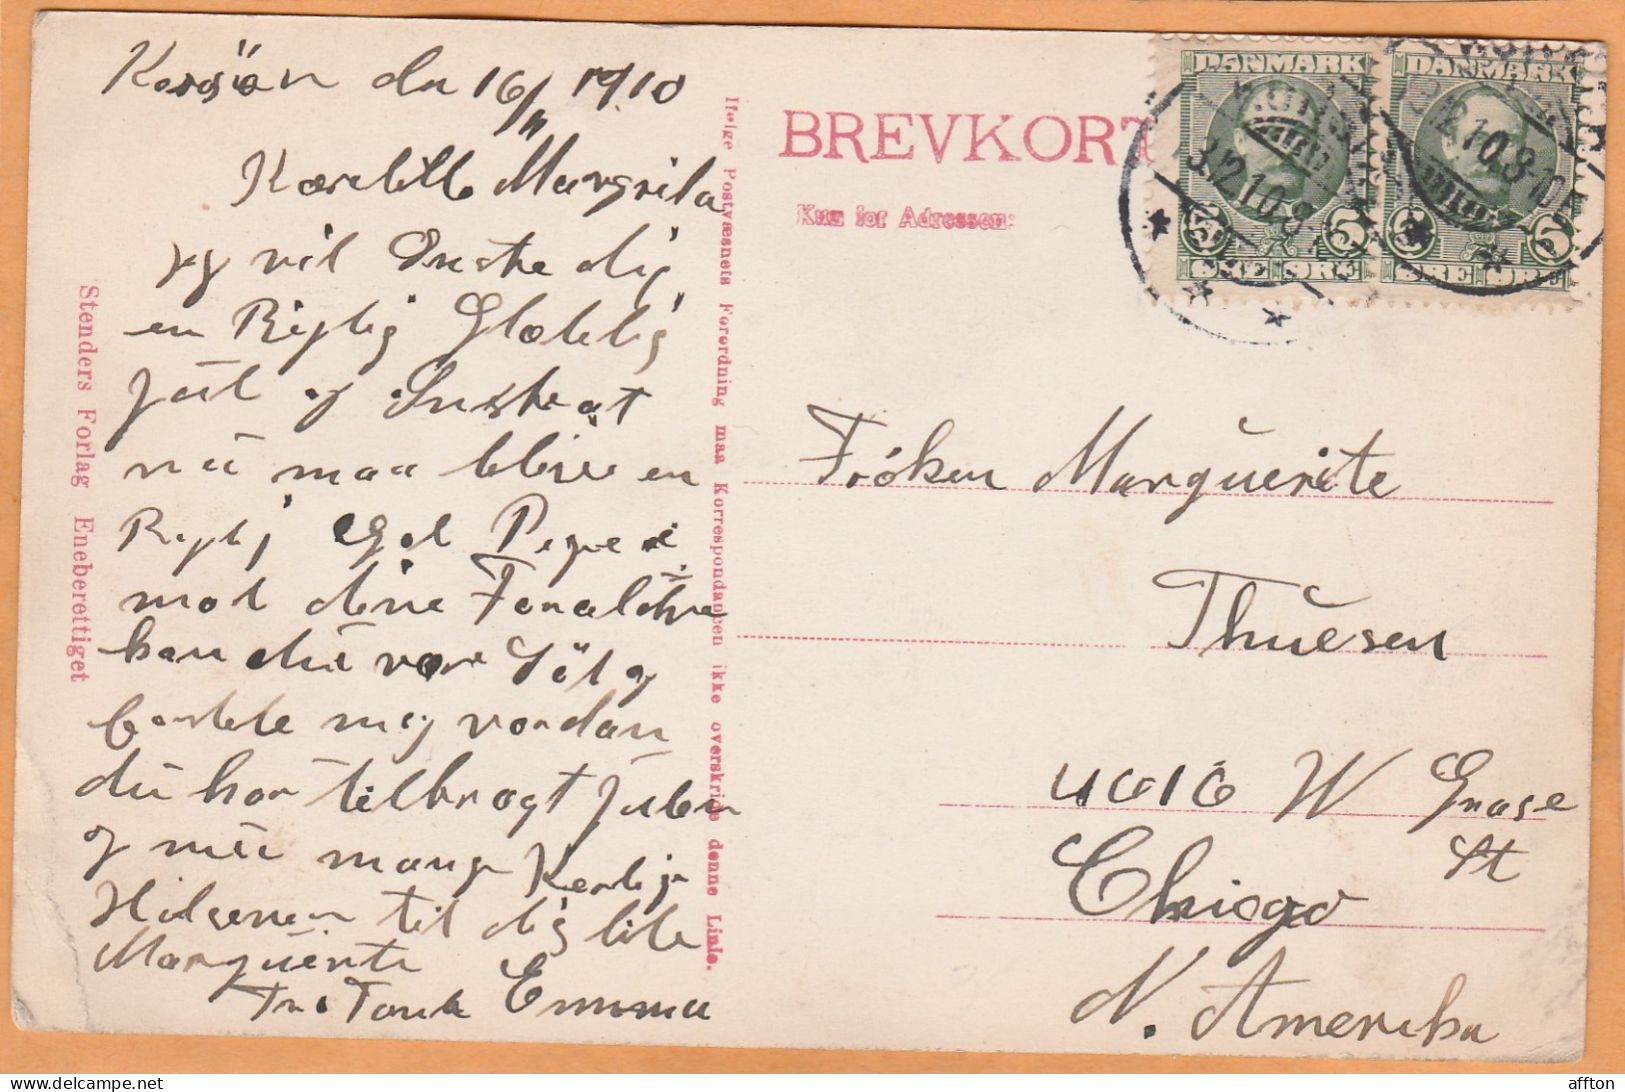 Korsör den 16/11 1910
Kære lille Margrita
jeg vil Önske dig
en Rigtig Glædelig
Jūl og Önske at
nū maa blive en
Rigtig God Pige i
mod dine Foraldre
kan dū vær Söd og
fortele mig vordan
dū har tilbragt Jūlen
og nūū mange Kerlige
Hilsener til dig lile
Margūerite
Fra Tante Emma
Stenders Forlag Eneberettiget
Ifølge Postvæsnets Forordning maa Korrespondancen ikke overskride denne Linie.
BREVKORT
Kun for Adressen:
DANMARK
5 5
ØRE ØRE
DANMARK
5 5
ØRE ØRE
3.12.10.8-
.12.10.8-10
Fröken Marguerite
Thūesen
W
St
Chicago
N. Amerika
affton